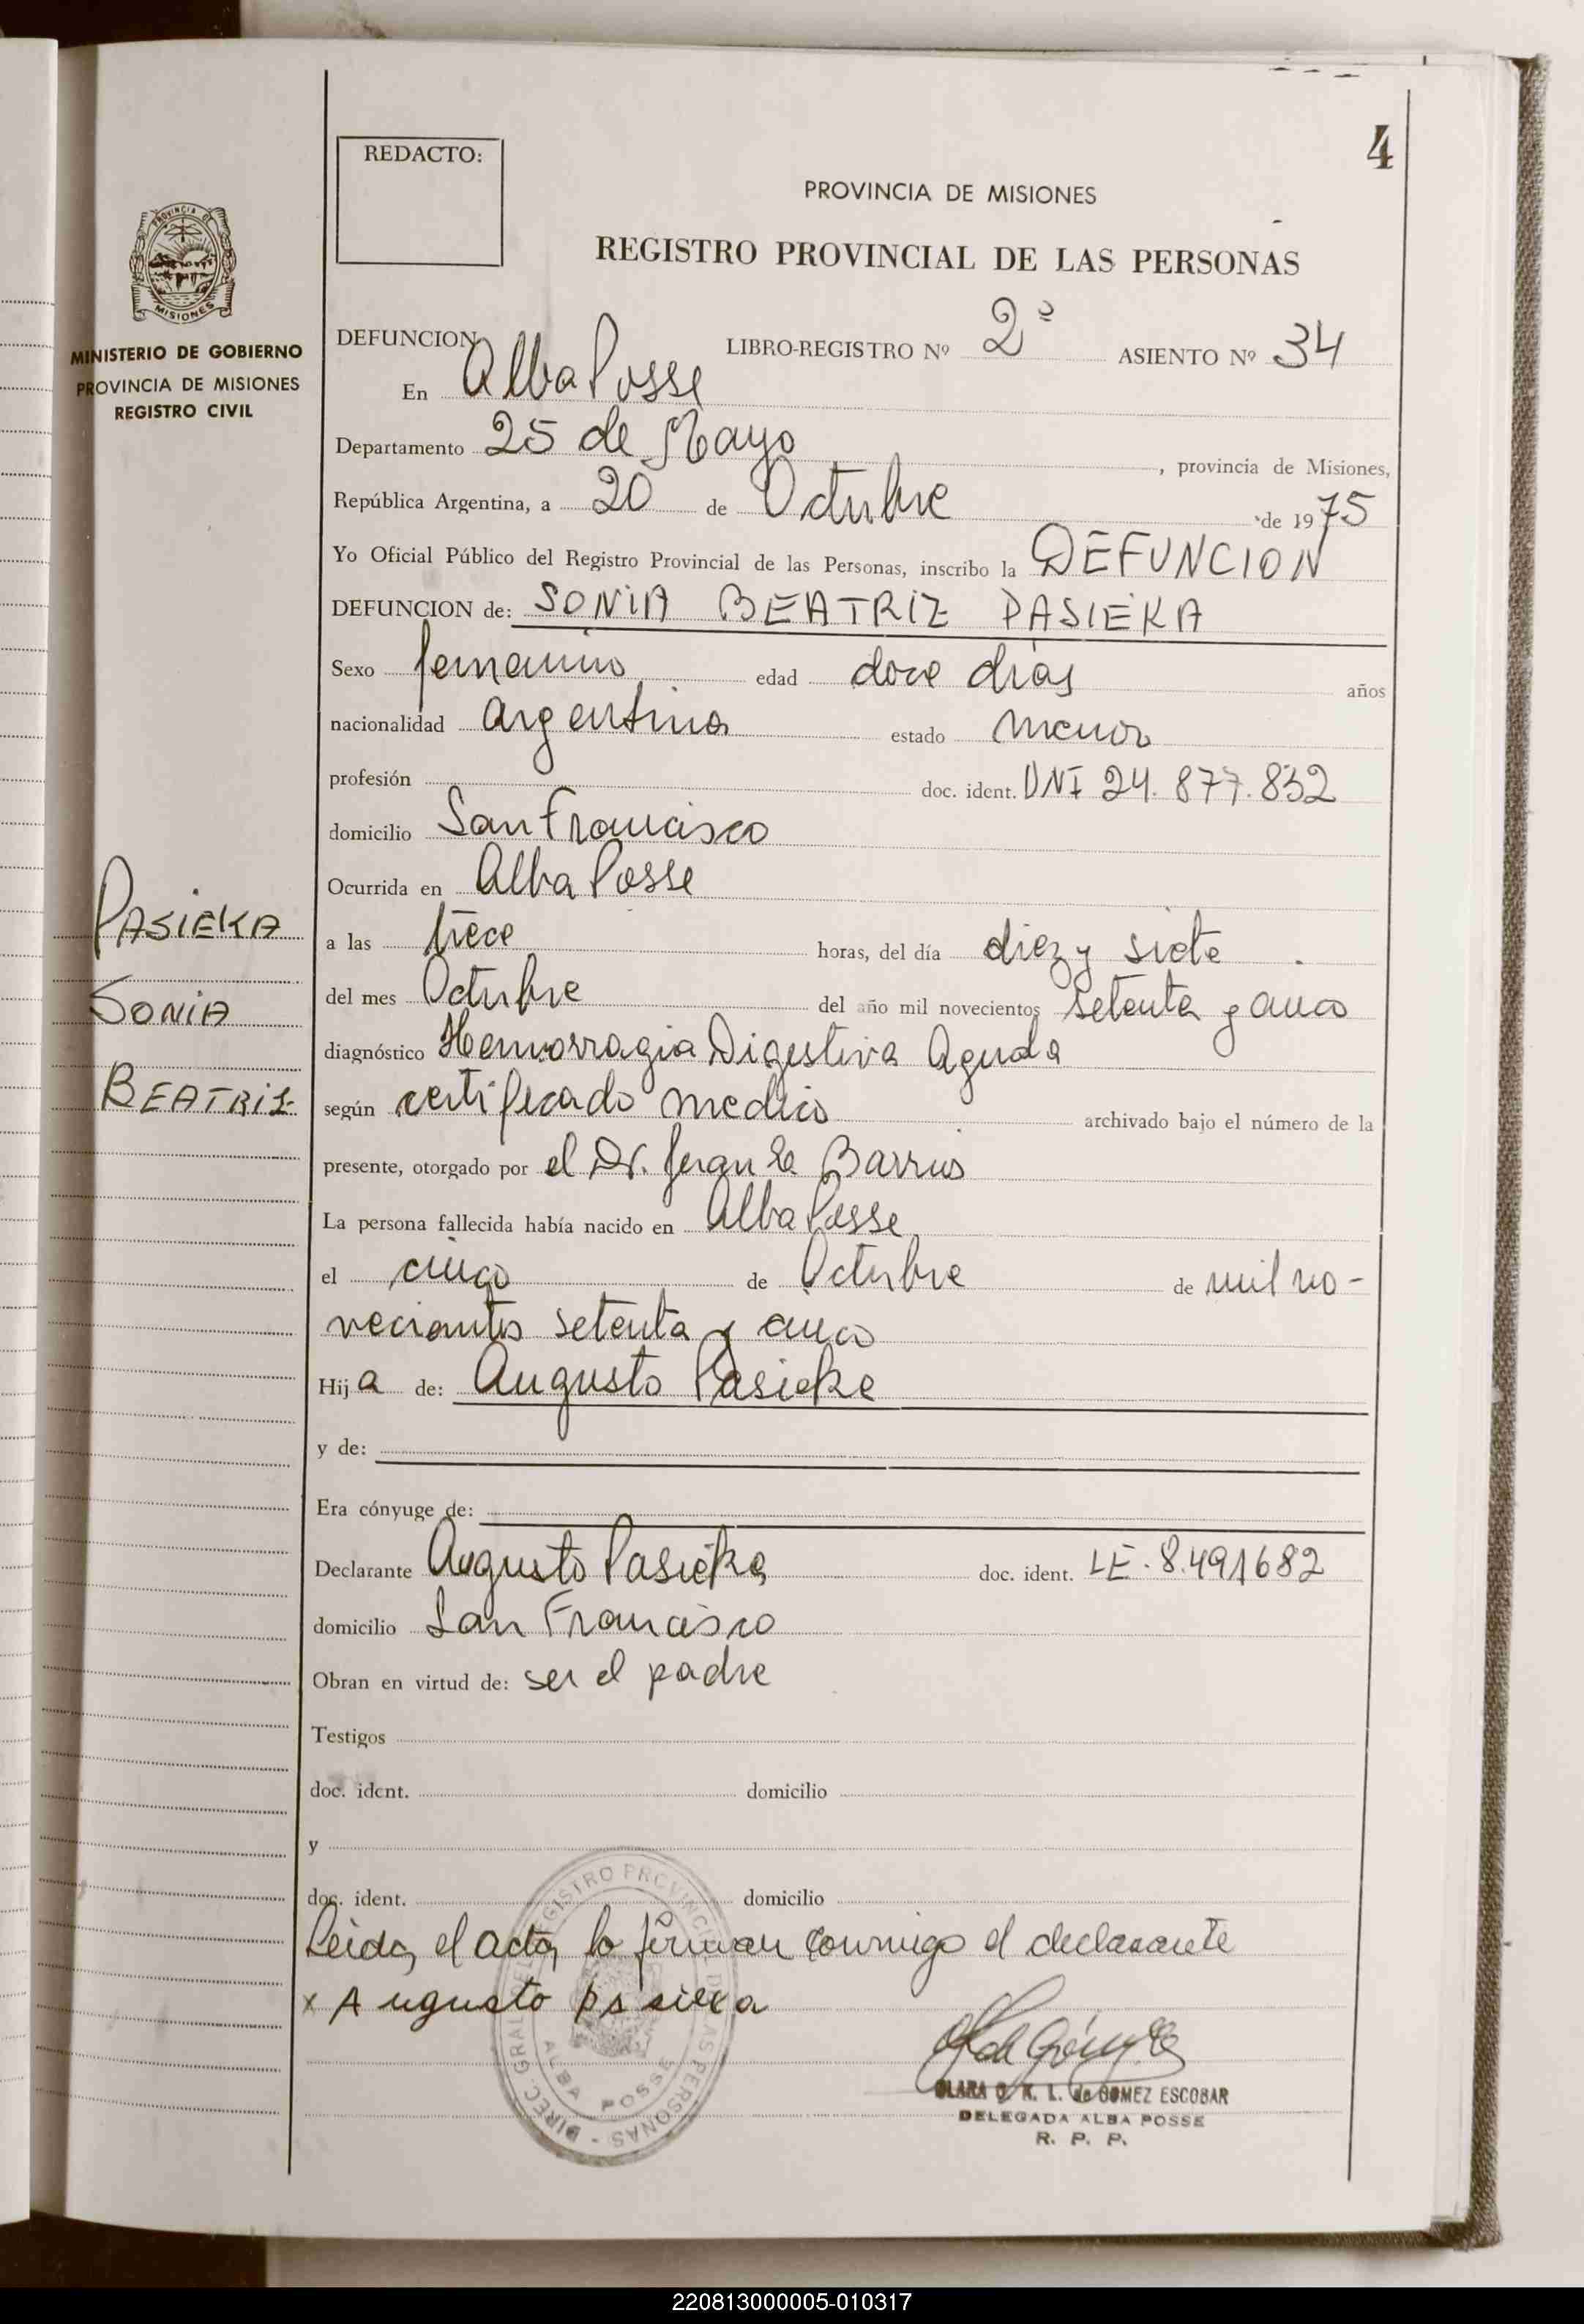 4
REDACTO:
PROVINCIA DE MISIONES
REGISTRO PROVINCIAL DE LAS PERSONAS
MISIONES
MINISTERIO DE GOBIERNO
PROVINCIA DE MISIONES
REGISTRO CIVIL
PASIEKA
SONIA
BEATRIZ
DEFUNCION LIBRO-REGISTRO Nº 2º ASIENTO Nº 34
En Alba Posse
Departamento 25 de Mayo, provincia de Misiones,
República Argentina, a 20 de Octubre de 1975
Yo Oficial Público del Registro Provincial de las Personas, inscribo la DEFUNCION
DEFUNCION de: SONIA BEATRIZ PASIEKA
Sexo femenino edad doce días años
nacionalidad argentina estado menor
profesión doc. ident. DNI 24.877.832
domicilio San Francisco
Ocurrida en Alba Posse
a las trece horas, del día diez y siete
del mes Octubre del año mil novecientos setenta y cinco
diagnóstico Hemorragia Digestiva Aguda
según certificado medico archivado bajo el número de la
presente, otorgado por el Dr. Barrios
La persona fallecida había nacido en Alba Posse
el cinco de Octubre de mil no-
vecientos setenta y cinco
Hija de: Augusto Pasieka
y de:
Era cónyuge de:
Declarante Augusto Pasieka doc. ident. LE. 8.491682
domicilio San Francisco
Obran en virtud de: ser el padre
Testigos
doc. ident. domicilio
y
doc. ident. domicilio
Leida el acta, la firman conmigo el declarante
x Augusto pasieka
DIREC. GRAL. DEL REGISTRO PROVINCIAL DE LAS PERSONAS -
ALBA POSSE
CLARA de GOMEZ ESCOBAR
DELEGADA ALBA POSSE
R. P. P.
220813000005-010317